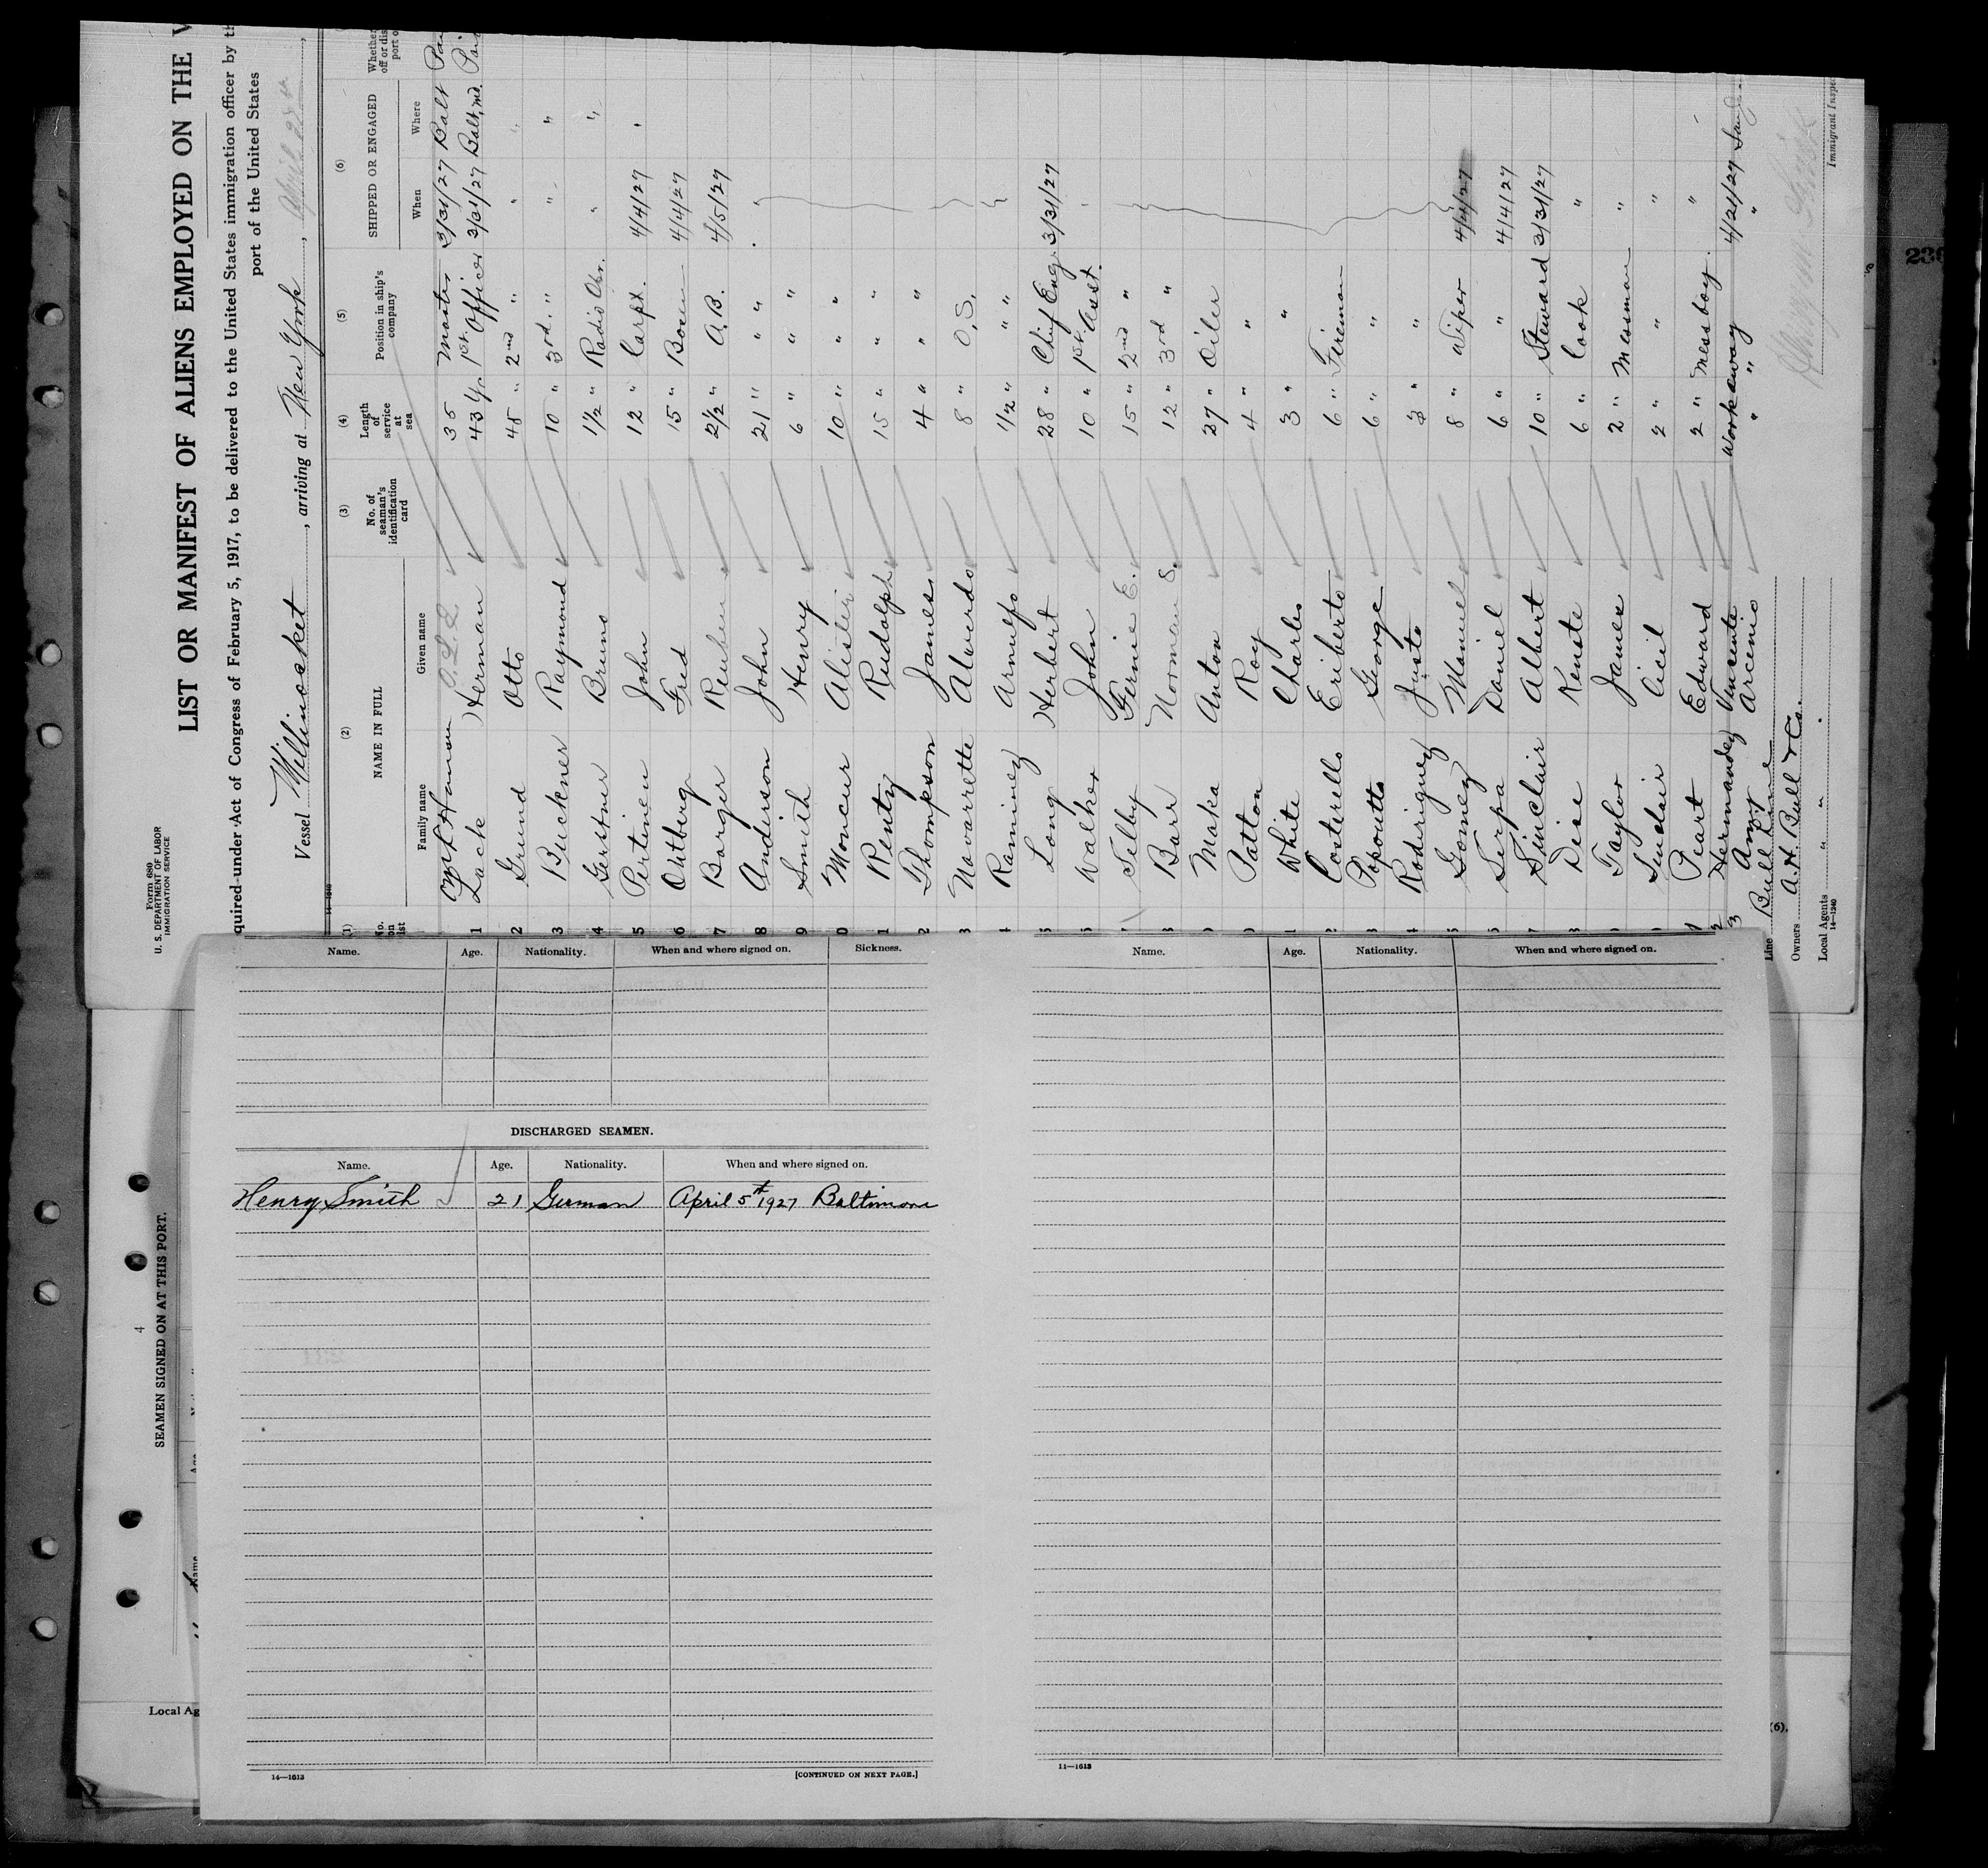 Form 680
U. S. DEPARTMENT OF LABOR
IMMIGRATION SERVICE
LIST OR MANIFEST OF ALIENS EMPLOYED ON THE V
quired under Act of Congress of February 5, 1917, to be delivered to the United States immigration officer by th
port of the United States
Vessel Millinocket, arriving at New York, April 28th
(1) (2) (3) (4) (5) (6)
No. on list NAME IN FULL No. of seaman's identification card Length of service at sea Position in ship's company SHIPPED OR ENGAGED Whether
off or dis
port o
Family name Given name When Where
35 Master 3/31/27 Balt
1 Lack Herman 43 Yr 1st Officer 3/31/27 Balt, Md.
2 Grund Otto 45 " 2nd " " "
3 Buckner Raymond 10 " 3rd " " "
4 Gerstner Bruno 1 1/2 " Radio Opr. " "
5 Pertinen John 12 " Carpt. 4/4/27 "
6 Ohtberg Fred 15 " Bosun 4/4/27
7 Barger Reuben 2 1/2 " A.B. 4/5/27
8 Anderson John 21 " " "
9 Smith Henry 6 " " "
0 Moncur Alister 10 " " "
1 Rentz Rudolph 15 " " "
2 Thompson James 4 " " "
3 Navarrette Alverdo 8 " O.S.
4 Raminez Arnulfo 1/2 " " "
5 Long Herbert 28 " Chief Eng. 3/31/27
6 Walker John 10 " 1st Asst. "
7 Selby Fernie E. 15 " 2nd "
8 Barr Norman S. 12 " 3rd "
9 Maka Anton 27 " Oiler
0 Patton Roy 4 " "
1 White Charles 3 " "
2 Costerello Eriberto 6 " Fireman
3 Popoutts George 6 " "
4 Rodriguez Justo 3 " "
5 Gomez Manuel 8 " Wiper 4/4/27
6 Serpa Daniel 6 " " 4/4/27
7 Sinclair Albert 10 " Steward 3/31/27
8 Dise Kenste 6 " Cook "
9 Taylor James 2 " Messman "
0 Sinclair Cicil 2 " " "
1 Peart Edward 2 " Messboy "
2 Hernandez Vincente Workaway 4/21/27
3 Amoy Arcenio " " "
Line Bull Line
Owners A. H. Bull & Co.
Local Agents " " "
14-1240
Immigrant Inspe
Name. Age. Nationality. When and where signed on. Sickness.
DISCHARGED SEAMEN.
Name. Age. Nationality. When and where signed on.
Henry Smith 21 German April 5th 1927 Baltimore
14—1613
[CONTINUED ON NEXT PAGE.]
Name. Age. Nationality. When and where signed on.
11—1613
4
SEAMEN SIGNED ON AT THIS PORT.
Name
Age
Local Ag
(6).
230